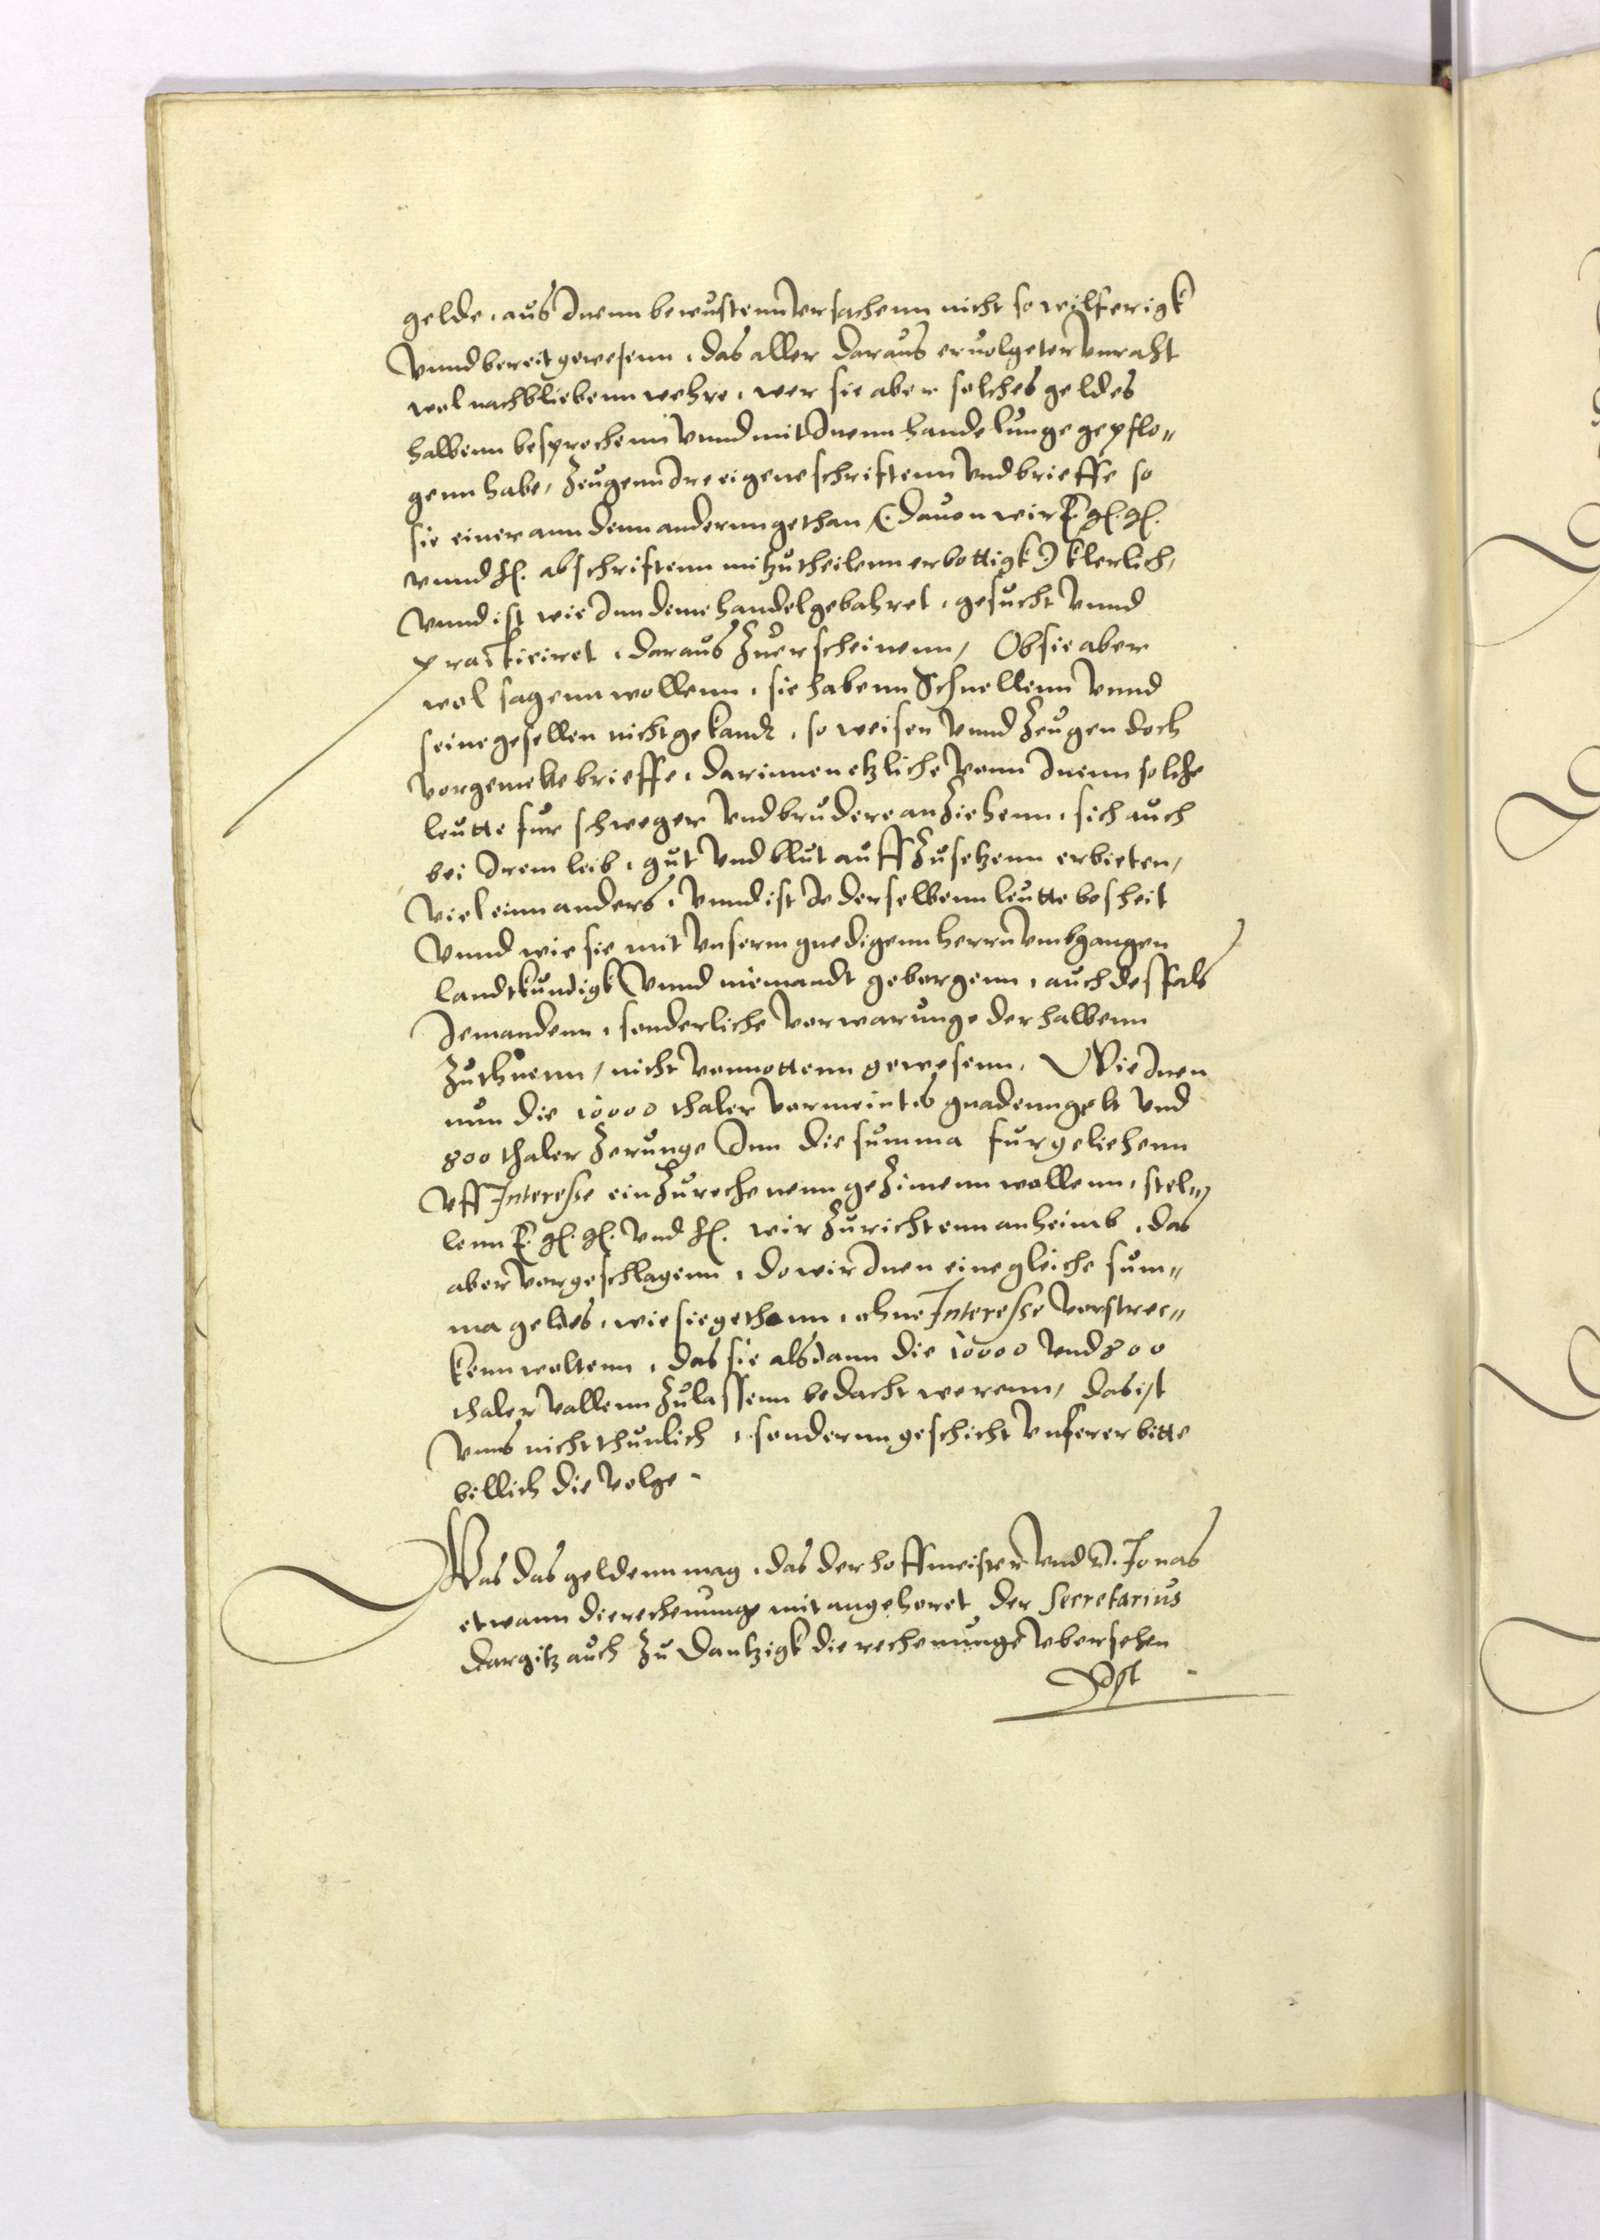 gelde, aus Inenn bewustenn Vrsachenn nicht so wilferigk
Vnnd bereit gewesenn, das aller daraus eruolgeter Vnraht
wol nachbliebenn wehre, wer sie aber solches geldes
halbenn besprochenn Vnnd mit Inenn handelunge gepflo„
genn habe, Zeugenn Ire eigene schriftenn Vnd brieffe so
sie einer ann denn andernn gethan /(: dauon wir E. gl. gl.
vnnd fl. abschriftenn mitzutheilenn erbottigk :) klerlich,
Vnnd ist wie Inn deme handel gebahret, gesucht Vnnd
practiciret, daraus Zuerscheinenn, Ob sie aber
wol sagenn wollenn, sie habenn Schnellenn Vnnd
seine gesellen nicht gekandt, so weisen Vnnd Zeugen doch
Vorgemelte brieffe, darinnen etzliche Vonn Inenn solche
leutte fur schweger Vnd brudere anZiehenn, sich auch
bei Irem leib, gut Vnd blut auffZusetzenn erbieten,
Viel einn anders, Vnnd ist Ie derselbenn leutte bosheit
Vnnd wie sie mit Vnserm gnedigenn herrn Vmbgangen
landtkundigk Vnnd niemandt geborgenn, auch desfals
Iemandenn, sonderliche Vorwarunge derhalbenn
Zuthuenn, nicht Vonnottenn gewesenn, Wie Inen
nun die 10000 thaler Vormeintes gnadenngelt Vnd
800 thaler Zerunge Inn die summa furgeliehenn
Vff Interesse einZurechenenn geZimenn wollenn, stel„
lenn E. gl. gl. Vnd fl. wir Zurichtenn anheimb, das
aber Vorgeschlagenn, do wir Inen eine gleiche sum„
ma geldes, wie sie gethann, ohne Interesse Vorstrec„
kenn woltenn, das sie alsdann die 10000 Vnd 800
thaler Vallenn Zulassenn bedacht werenn, das ist
Vnns nicht thunlich, sondernn geschicht Vnserer bitte
billich die Volge
Was das geldenn mag, das der hoffmeister Vnd D. Jonas
etwann die rechenunge mit angehoret der Secretarius
auch Zu Dantzigk die rechenunge Vbersehen